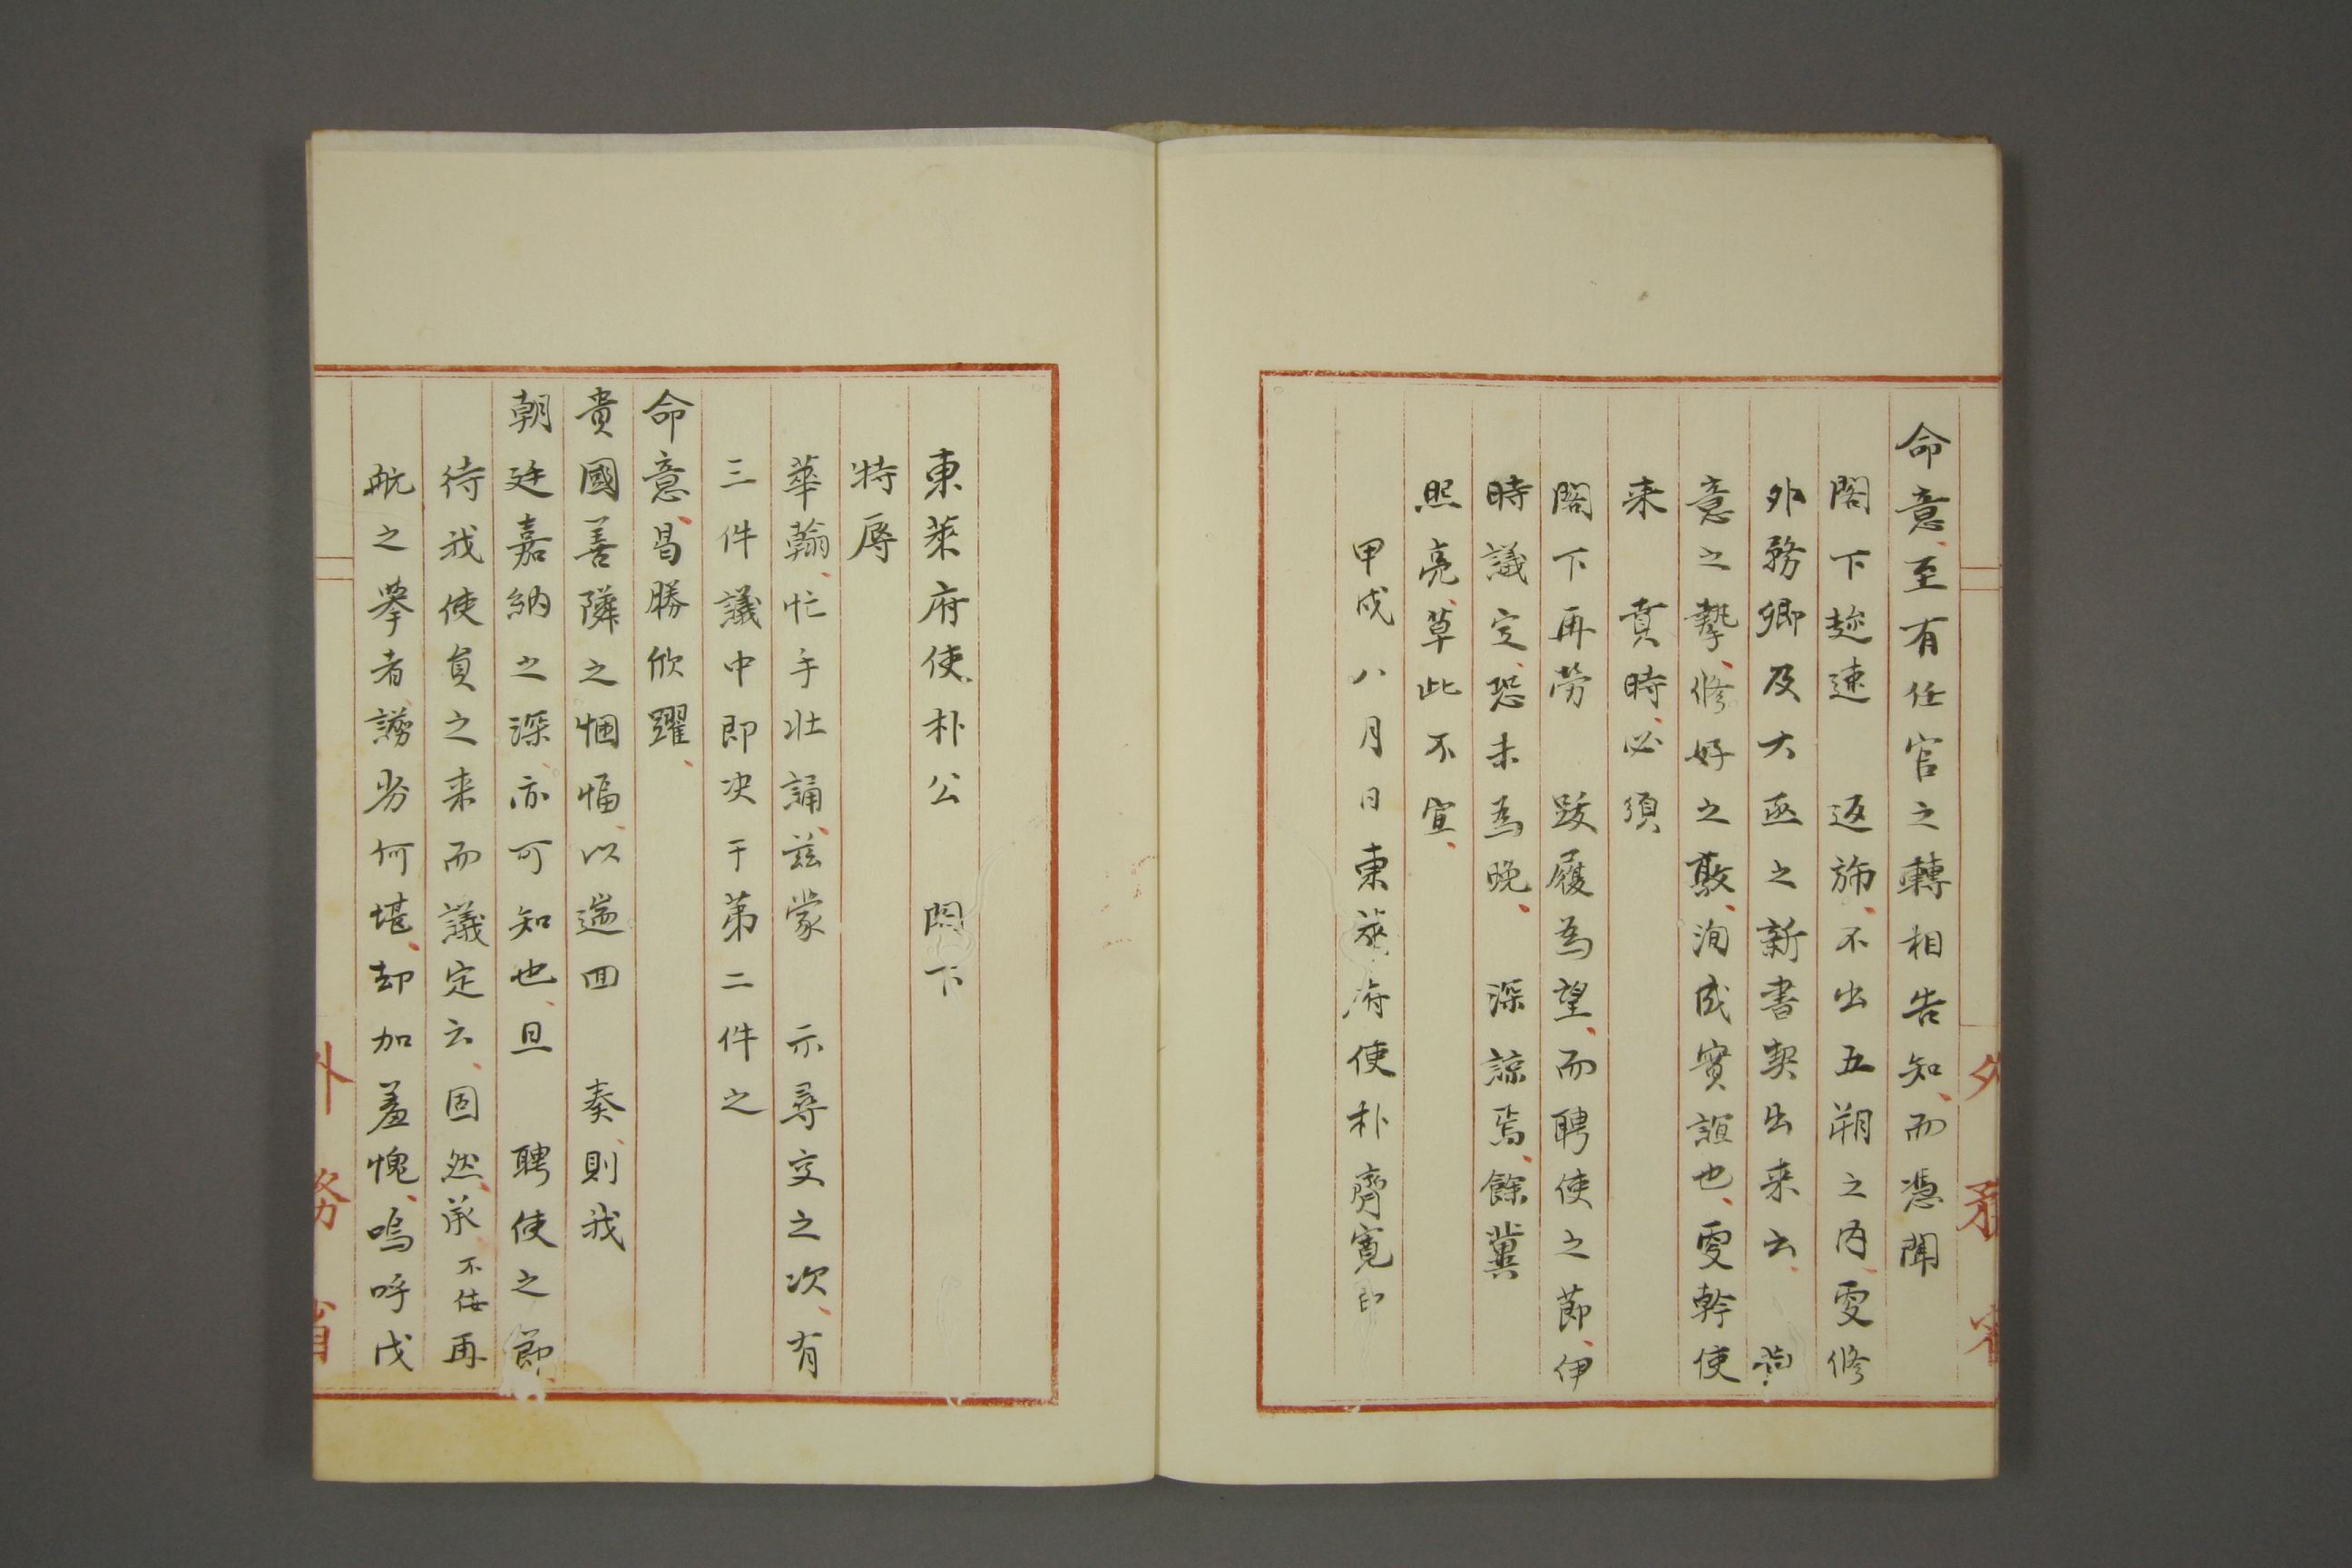 命意、至有任官之轉相告知、而憑聞
閣下趂速　返旆、不出五朔之內、更修
外務卿及大丞之新書契出来云、尙
意之摯、修好之敦、洵成實誼也、更幹使
来　賁時、必須
閣下再勞　跋履為望、而聘使之節、伊
時議定、恐未為晚、　深諒焉、餘冀
照亮、草此不宣、
甲戌八月日東萊府使朴齊寬印
東萊府使朴公　閣下
特辱
華翰、忙手壯誦、玆蒙　示尋交之次、有
三件議中即决于第二件之
命意、曷勝欣躍、
貴國善隣之悃愊、以遄回　奏、則我
朝廷嘉納之深、亦可知也、且　聘使之節、
待我使員之来而議定云、固然、承、不佞再
航之擧者、謭劣何堪、却加羞愧、嗚呼戊
外務省
外務省